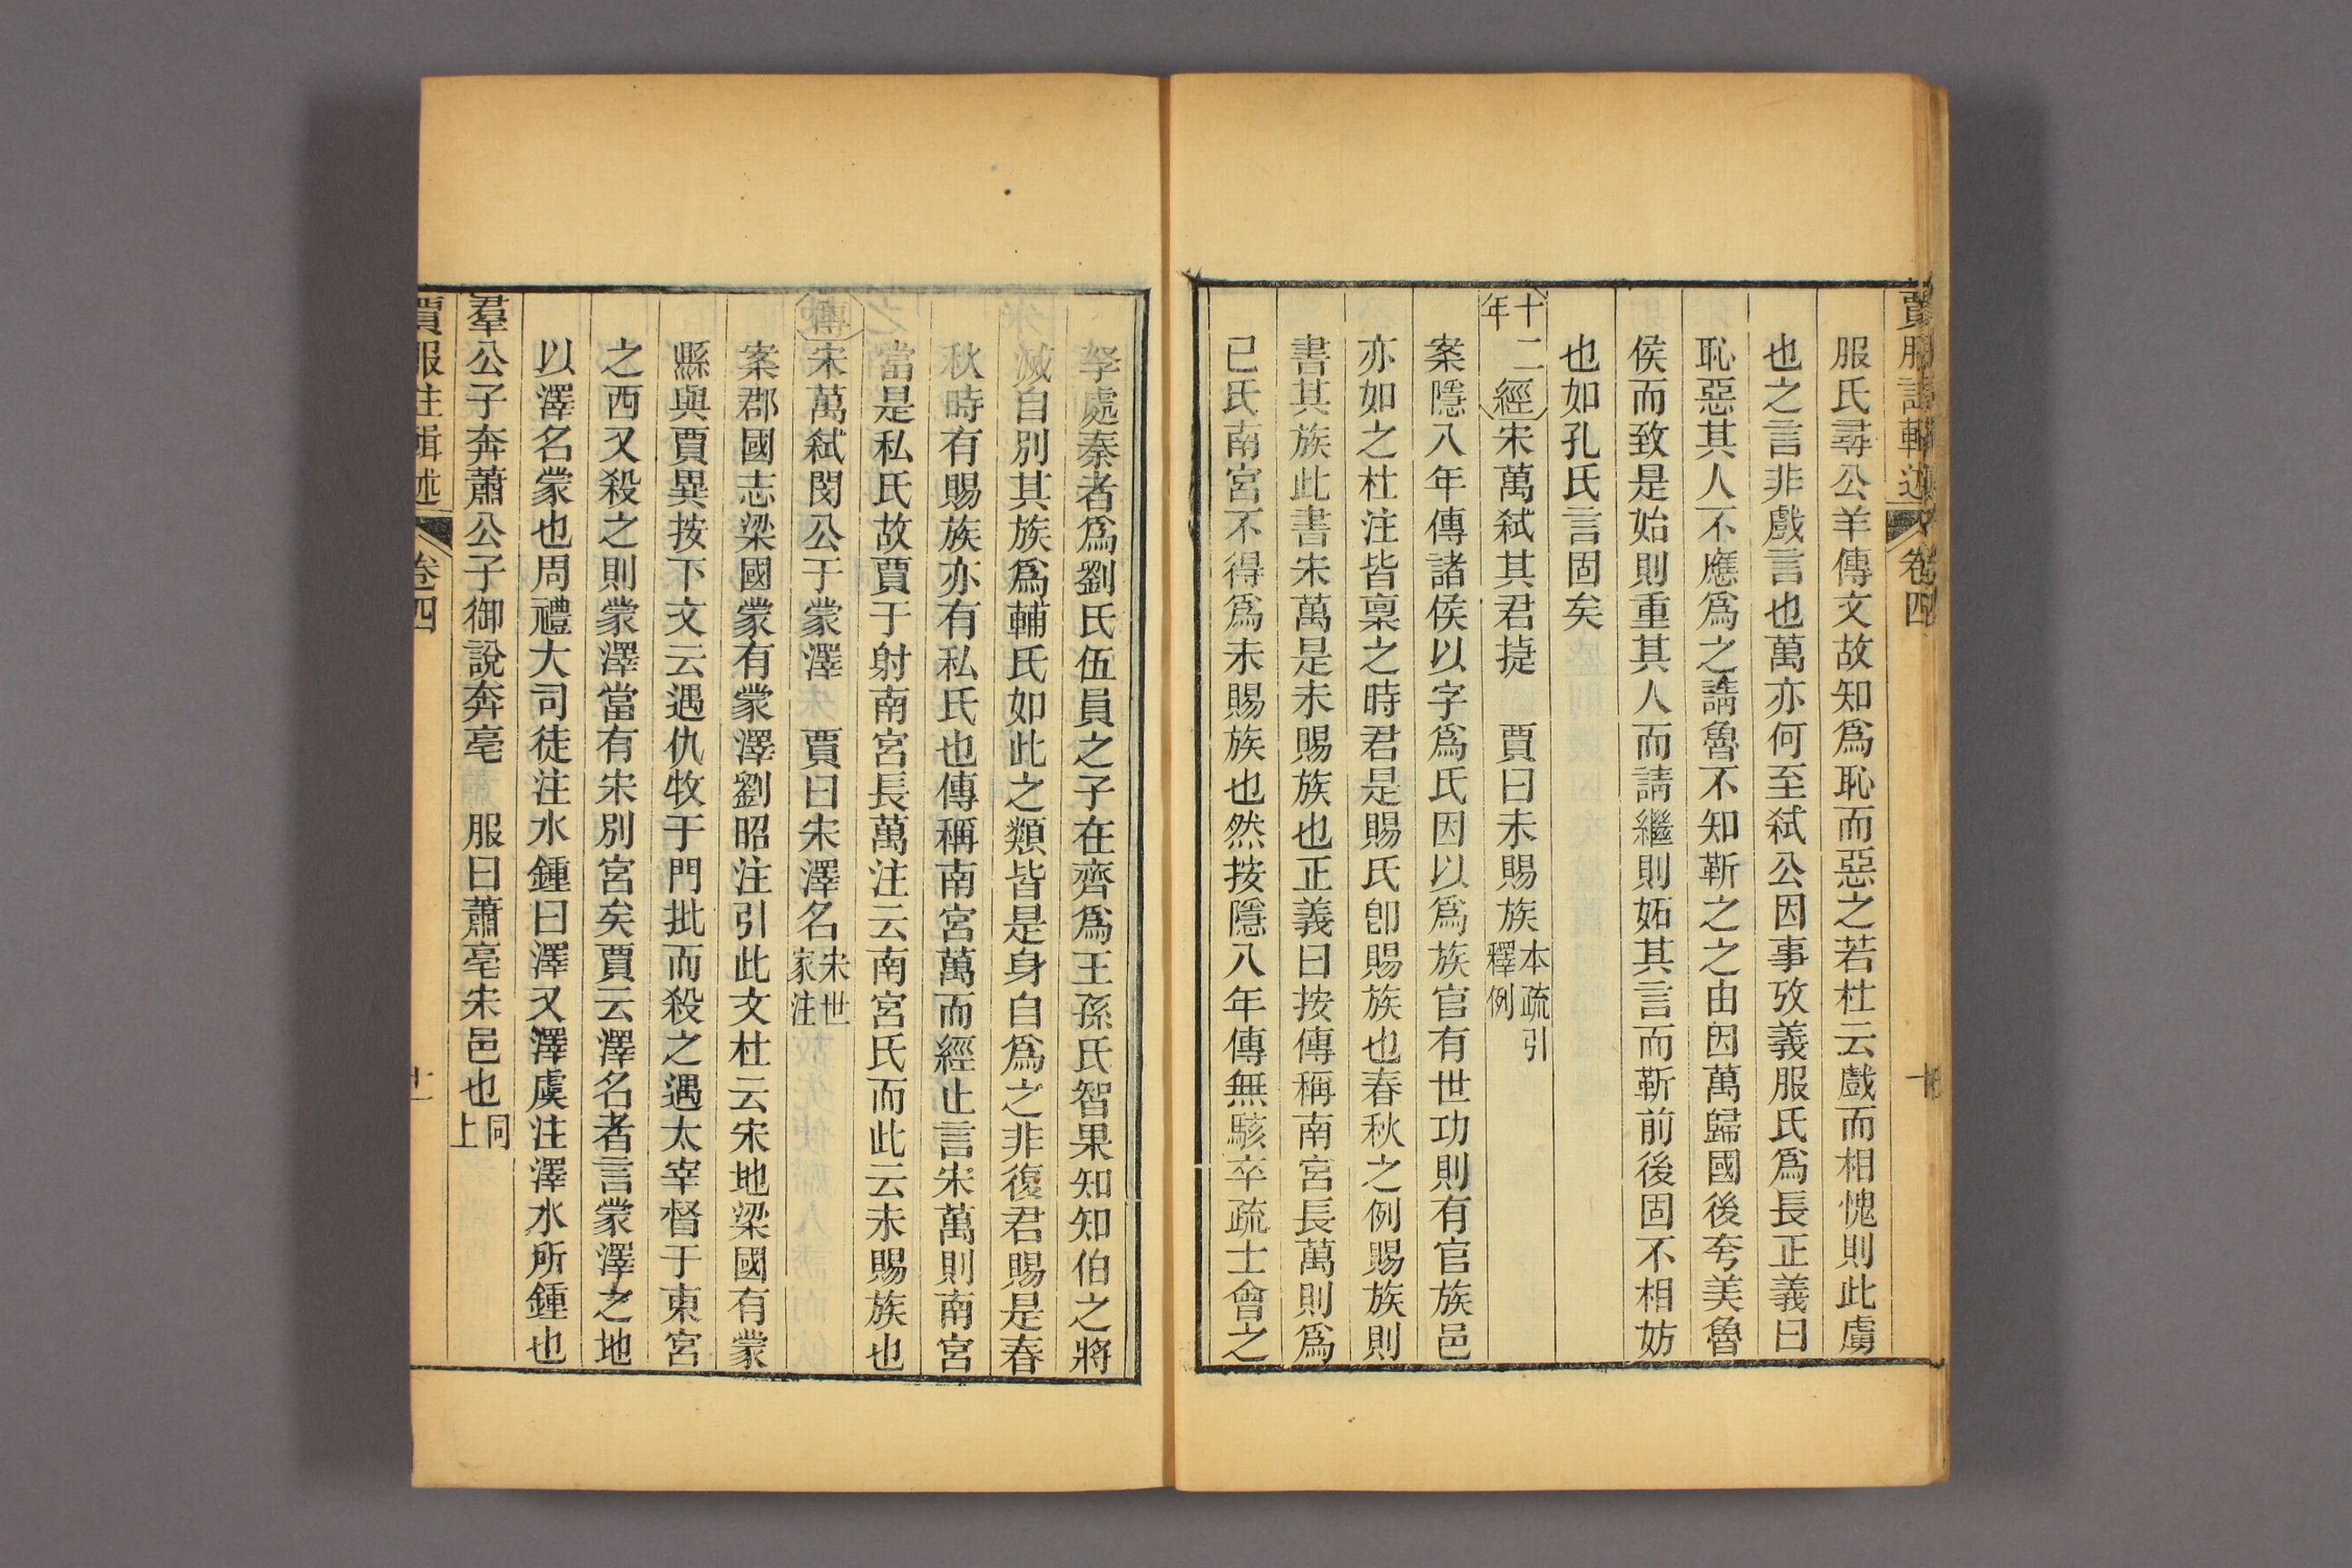 賈服注輯述 卷四
服氏尋公羊傳文故知爲恥而惡之若杜云戲而相愧則此虜
也之言非戲言也萬亦何至弑公因事攷義服氏爲長正義曰
恥惡其人不應爲之請魯不知靳之之由因萬歸國後夸美魯
侯而致是始則重其人而請繼則妬其言而靳前後固不相妨
也如孔氏言固矣
十二年經宋萬弑其君捷 賈曰未賜族本疏引釋例
案隱八年傳諸侯以字爲氏因以爲族官有世功則有官族邑
亦如之杜注皆稟之時君是賜氏卽賜族也春秋之例賜族則
書其族此書宋萬是未賜族也正義曰按傳稱南宮長萬則爲
已氏南宮不得爲未賜族也然按隱八年傳無駭卒疏士會之
孥處秦者爲劉氏伍員之子在齊爲王孫氏智果知知伯之將
滅自別其族爲輔氏如此之類皆是身自爲之非復君賜是春
秋時有賜族亦有私氏也傳稱南宮萬而經止言宋萬則南宮
當是私氏故賈于射南宮長萬注云南宮氏而此云未賜族也
傳宋萬弑閔公于蒙澤 賈曰宋澤名宋世家注
案郡國志梁國蒙有蒙澤劉昭注引此文杜云宋地梁國有蒙
縣與賈異按下文云遇仇牧于門批而殺之遇太宰督于東宮
之西又殺之則蒙澤當有宋別宮矣賈云澤名者言蒙澤之地
以澤名蒙也周禮大司徒注水鍾曰澤又澤虞注澤水所鍾也
羣公子奔蕭公子御說奔亳 服曰蕭亳宋邑也同上
賈服注輯述 卷四